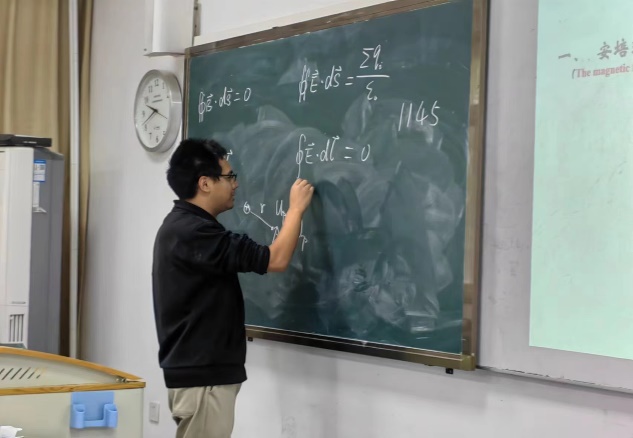 ∯B⃗·dS⃗=0
∯E⃗·dS⃗=Σqᵢ/ε₀
1145
∮E⃗·dl⃗=0
r
一、安培
(The magnetic